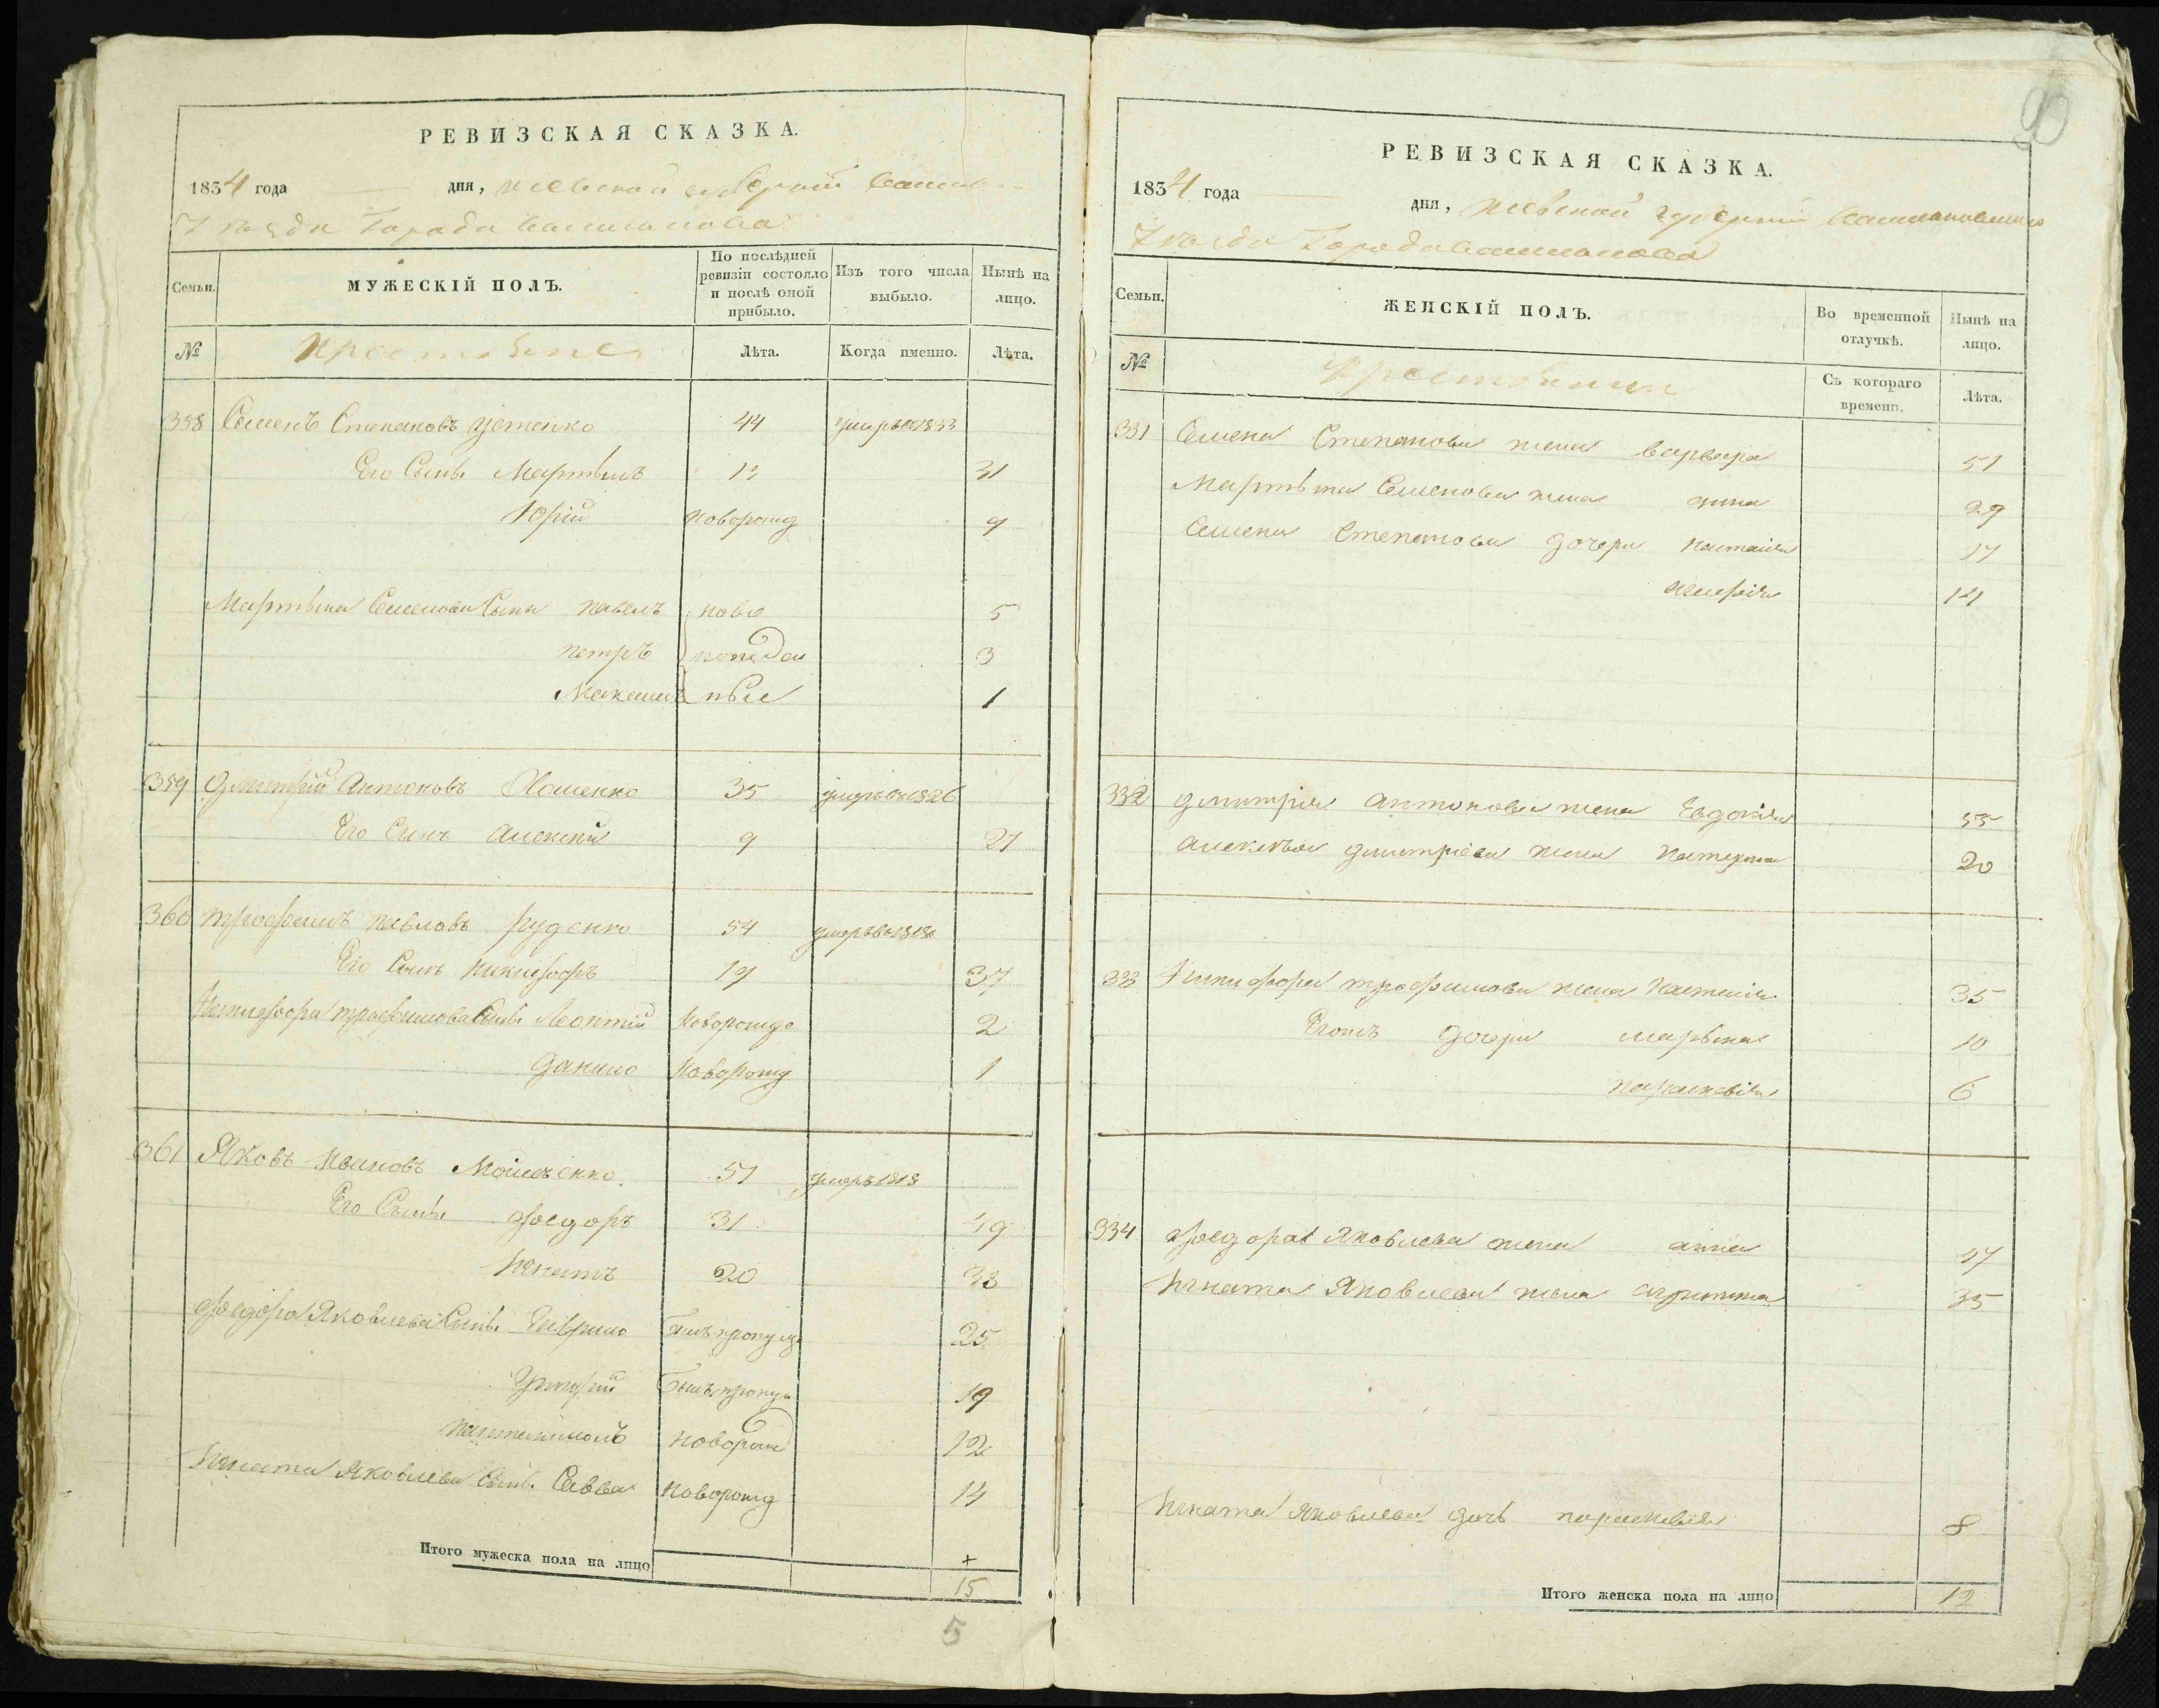 РЕВИЗСКАЯ СКАЗКА.
1834 года дня, Киевской губернии
уезда Города Василькова
Семьи. МУЖЕСКІЙ ПОЛЪ. По послѣдней ревизіи состояло и послѣ оной прибыло. Изъ того числа выбыло. Нынѣ на лицо.
№ Лѣта. Когда именно. Лѣта.
358 Семенъ Степановъ Устенко 44 умеръ 1833
Его Сынъ Мартынъ 31
Юрій новорожд 9
Мартына Семенова Сыны павелъ ново 5
петръ рожден 3
Максимъ ные 1
359 Дмитрій Антоновъ 35 умеръ 1826
Его Сынъ алексѣй 9 27
360 трофимъ павловъ руденко 54 умеръ 1818
Его Сынъ никифоръ 19 37
Никифора трофимова Сынъ Леонтій Новорожде 2
данило Новорожд 1
361 Яковъ Ивановъ 51 умеръ 1818
Его Сынъ федоръ 31 49
Игнатъ 20 38
федора Яковлева Сынъ Гаврило былъ пропущ 25
былъ пропущ 19
пантилимонъ новорож 12
Игната Яковлева Сынъ Савва новорожд 14
Итого мужеска пола на лицо 15
5
90
РЕВИЗСКАЯ СКАЗКА.
1834 года дня, Киевской губерніи
уезда Города Василькова
Семьи. ЖЕНСКІЙ ПОЛЪ. Во временной отлучкѣ. Нынѣ на лицо.
№ Съ котораго времени. Лѣта.
331 Семена Степанова жена варвара 51
Мартына Семенова жена 29
Семена Степанова дочери настасія 17
14
332 дмитрія антонова жена Евдокія 55
алексѣя дмитріева жена катерина 20
333 Никифора трофимова жена настасія 35
Егожъ дочери марьяна 10
параскевія 6
334 федора Яковлева жена анна 47
Игната Яковлева жена 35
Игната Яковлева дочь параскевія 8
Итого женска пола на лицо 12